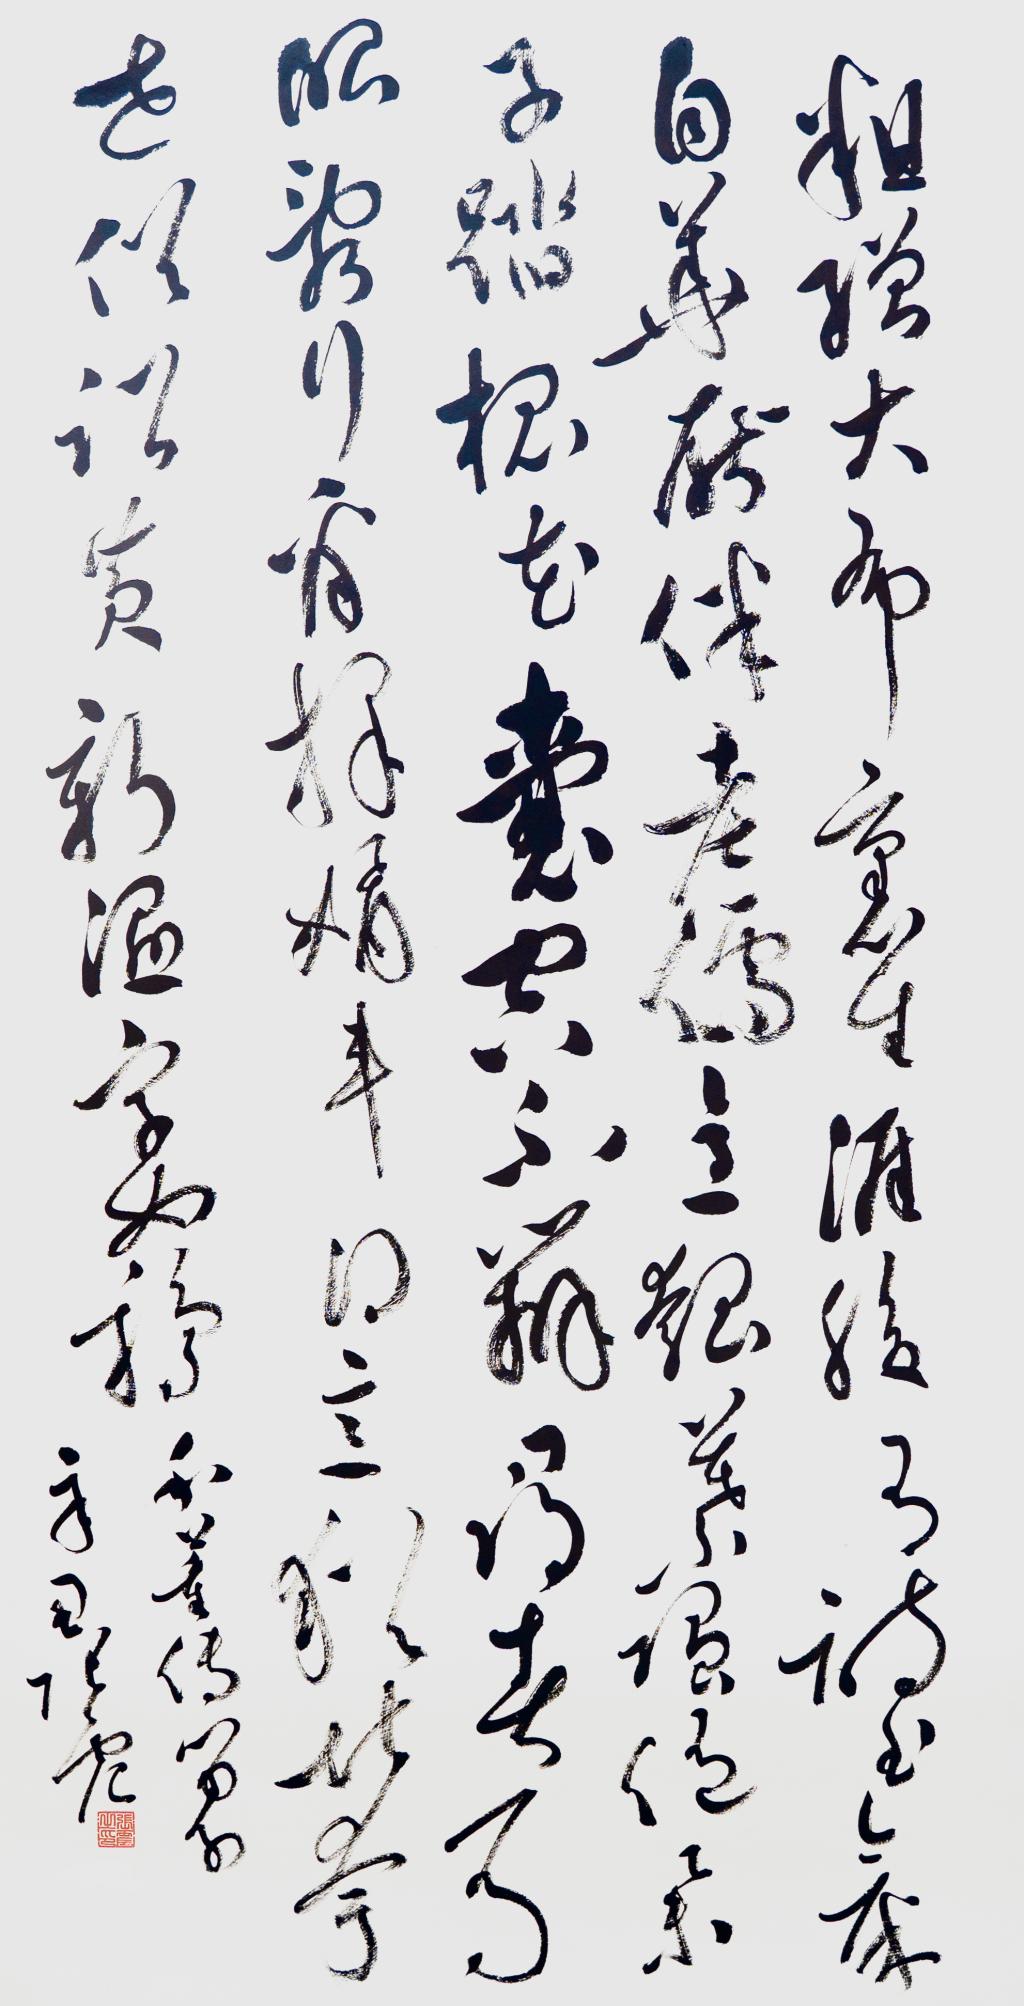 粗繒大布裹生涯腹有詩書氣
自華厭伴老儒烹瓠葉強隨舉
子踏槐花囊空不辦尋春馬
眼亂行看擇婿車得意猶堪夸
世俗詔黃新濕字如鴉
和董傳留別
辛丑張